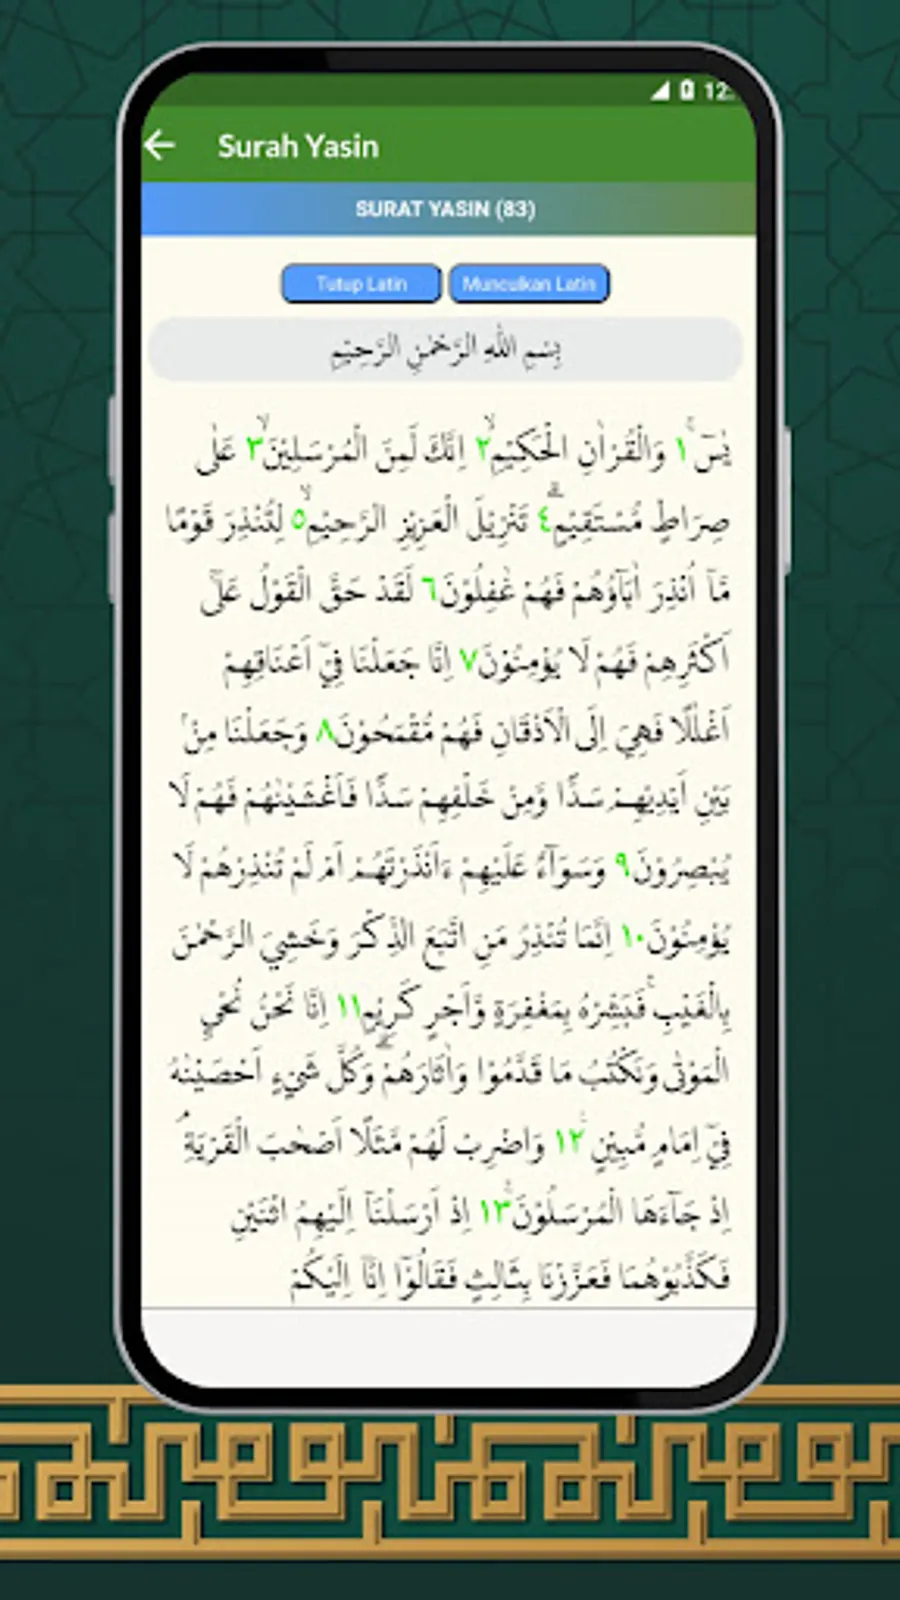 12:
Surah Yasin
SURAT YASIN (83)
Tutup Latin
Munculkan Latin
بِسْمِ اللّٰهِ الرَّحْمٰنِ الرَّحِيْمِ
يٰسۤ ۚ١ وَالْقُرْاٰنِ الْحَكِيْمِۙ٢ اِنَّكَ لَمِنَ الْمُرْسَلِيْنَۙ٣ عَلٰى
صِرَاطٍ مُّسْتَقِيْمٍۗ٤ تَنْزِيْلَ الْعَزِيْزِ الرَّحِيْمِۙ٥ لِتُنْذِرَ قَوْمًا
مَّآ اُنْذِرَ اٰبَاۤؤُهُمْ فَهُمْ غٰفِلُوْنَ٦ لَقَدْ حَقَّ الْقَوْلُ عَلٰٓى
اَكْثَرِهِمْ فَهُمْ لَا يُؤْمِنُوْنَ٧ اِنَّا جَعَلْنَا فِيْٓ اَعْنَاقِهِمْ
اَغْلٰلًا فَهِيَ اِلَى الْاَذْقَانِ فَهُمْ مُّقْمَحُوْنَ٨ وَجَعَلْنَا مِنْۢ
بَيْنِ اَيْدِيْهِمْ سَدًّا وَّمِنْ خَلْفِهِمْ سَدًّا فَاَغْشَيْنٰهُمْ فَهُمْ لَا
يُبْصِرُوْنَ٩ وَسَوَاۤءٌ عَلَيْهِمْ ءَاَنْذَرْتَهُمْ اَمْ لَمْ تُنْذِرْهُمْ لَا
يُؤْمِنُوْنَ١٠ اِنَّمَا تُنْذِرُ مَنِ اتَّبَعَ الذِّكْرَ وَخَشِيَ الرَّحْمٰنَ
بِالْغَيْبِۚ فَبَشِّرْهُ بِمَغْفِرَةٍ وَّاَجْرٍ كَرِيْمٍ١١ اِنَّا نَحْنُ نُحْيِ
الْمَوْتٰى وَنَكْتُبُ مَا قَدَّمُوْا وَاٰثَارَهُمْۗ وَكُلَّ شَيْءٍ اَحْصَيْنٰهُ
فِيْٓ اِمَامٍ مُّبِيْنٍ ۚ١٢ وَاضْرِبْ لَهُمْ مَّثَلًا اَصْحٰبَ الْقَرْيَةِۘ
اِذْ جَاۤءَهَا الْمُرْسَلُوْنَۚ١٣ اِذْ اَرْسَلْنَآ اِلَيْهِمُ اثْنَيْنِ
فَكَذَّبُوْهُمَا فَعَزَّزْنَا بِثَالِثٍ فَقَالُوْٓا اِنَّآ اِلَيْكُمْ